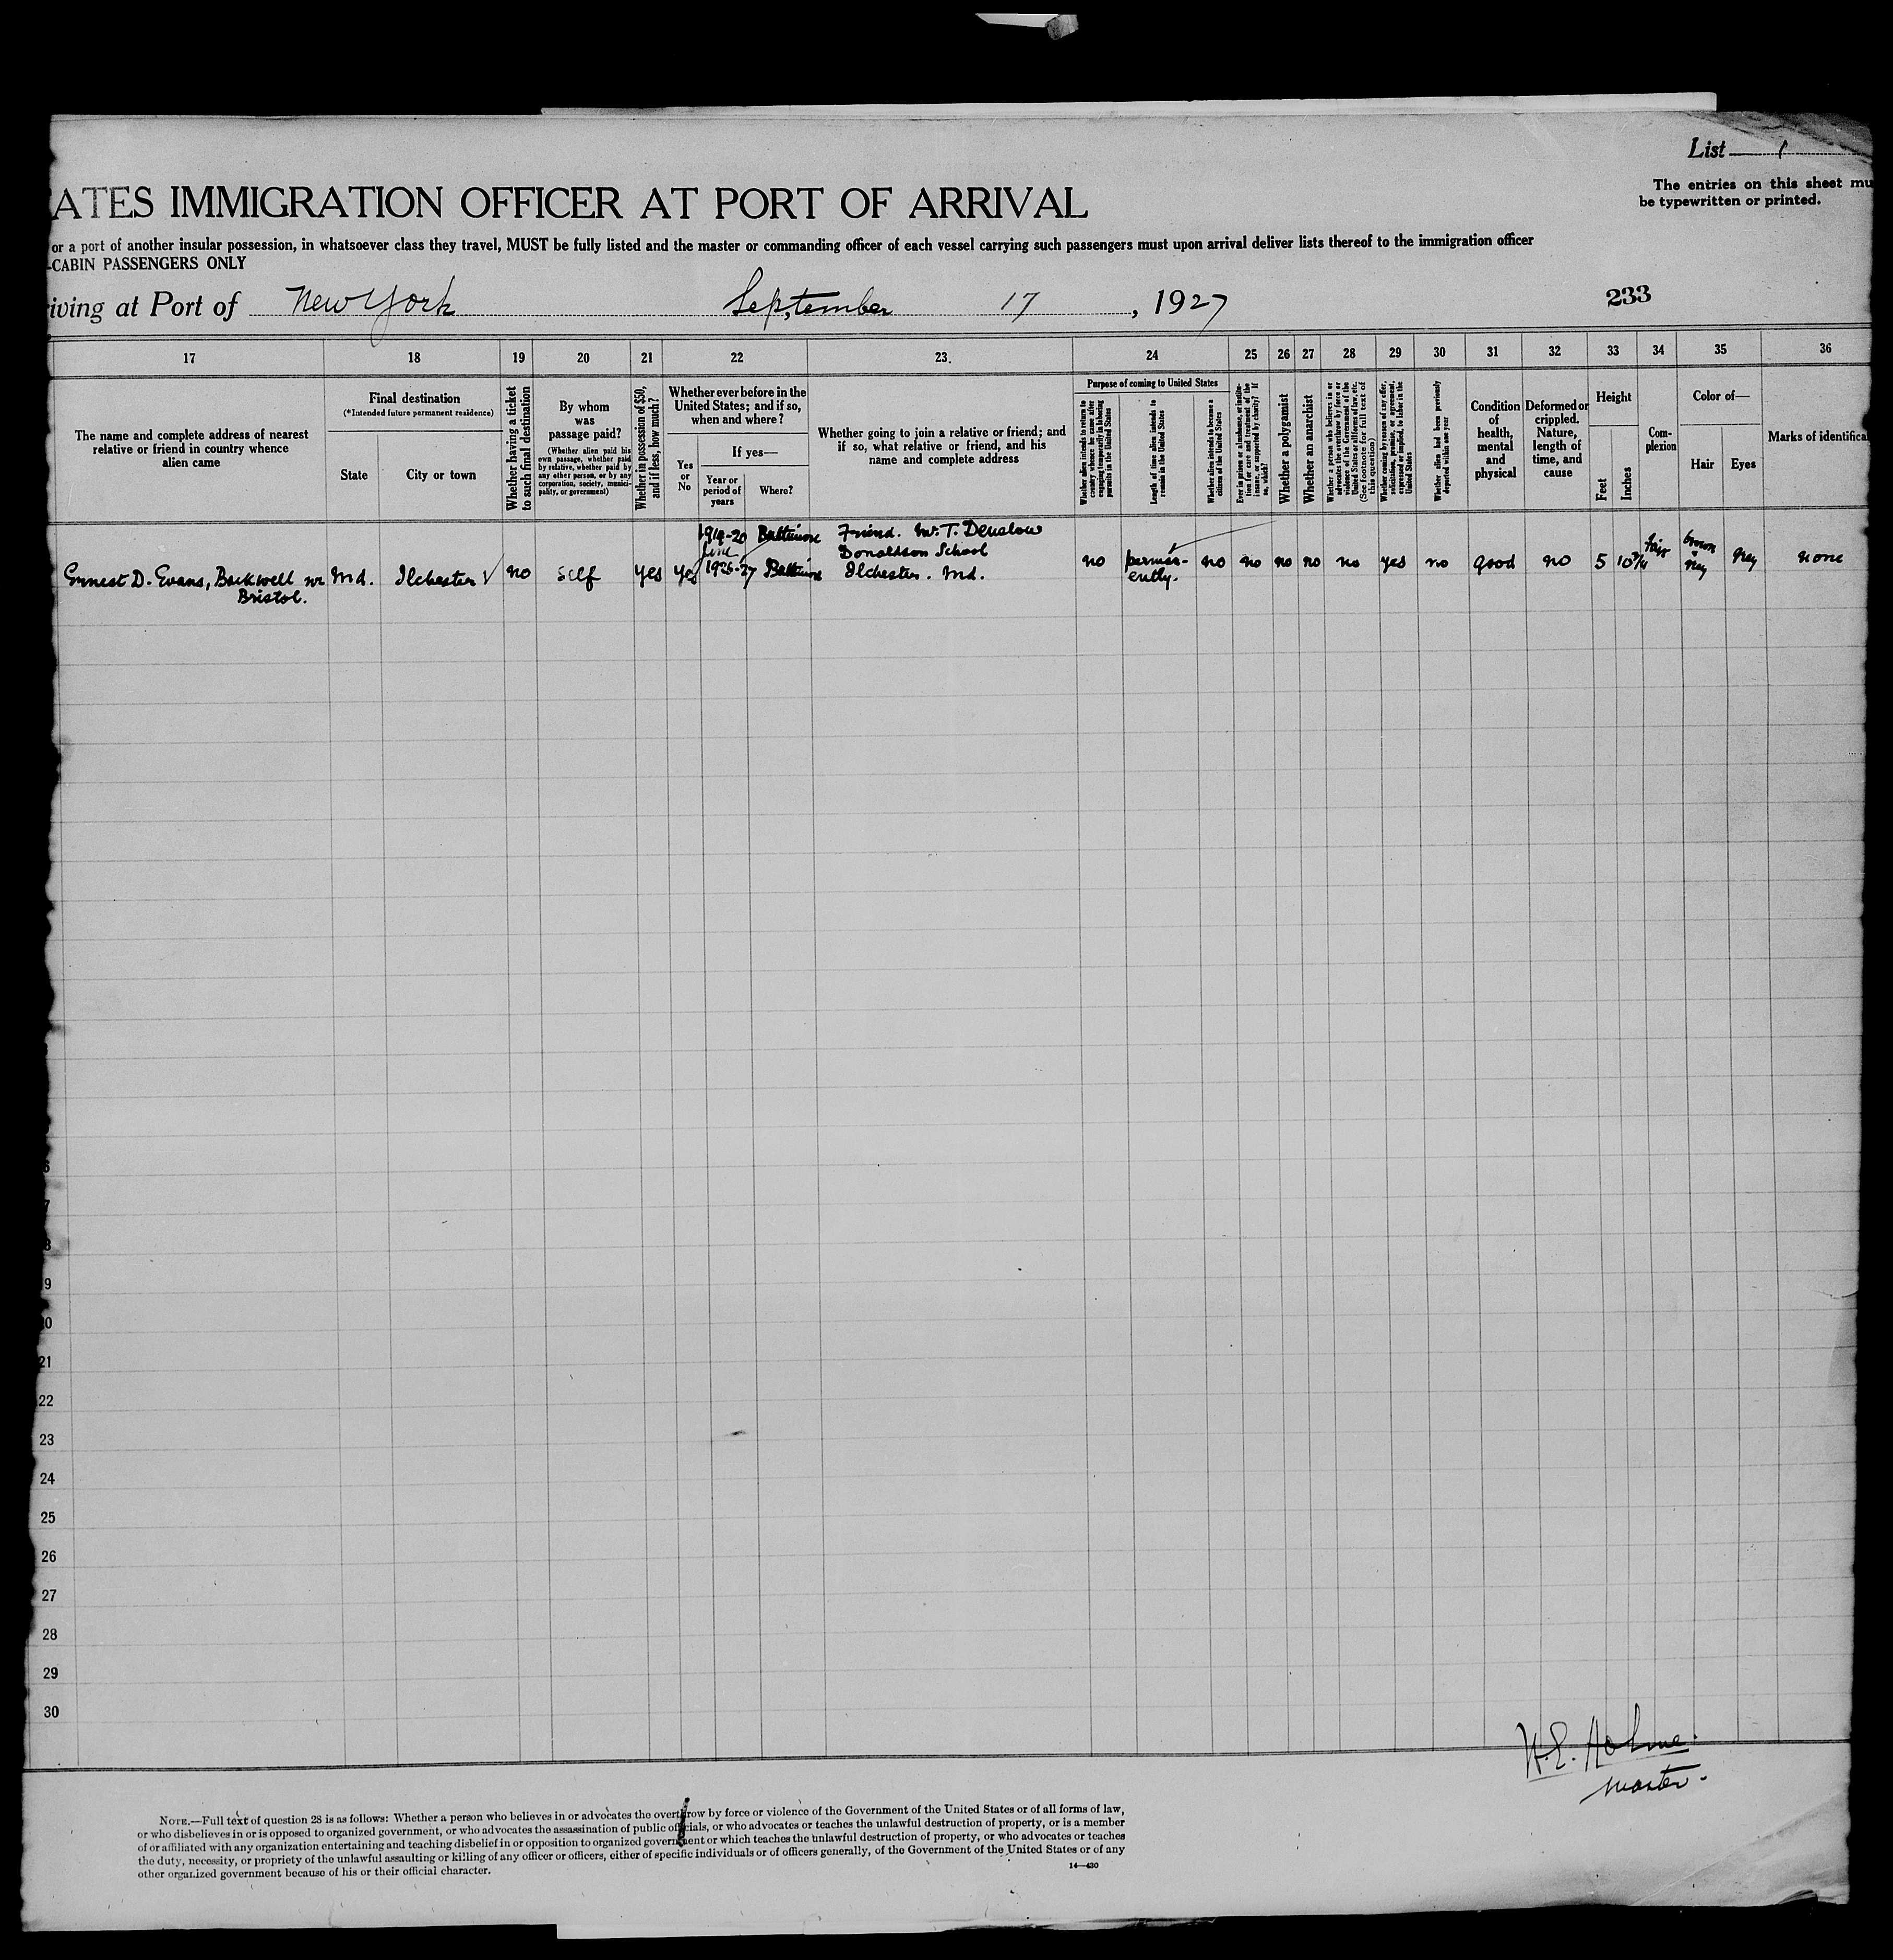 List 1
The entries on this sheet mu
be typewritten or printed.
ATES IMMIGRATION OFFICER AT PORT OF ARRIVAL
or a port of another insular possession, in whatsoever class they travel, MUST be fully listed and the master or commanding officer of each vessel carrying such passengers must upon arrival deliver lists thereof to the immigration officer
-CABIN PASSENGERS ONLY
iving at Port of New York September 17, 1927
233
17 18 19 20 21 22 23. 24 25 26 27 28 29 30 31 32 33 34 35 36
The name and complete address of nearest
relative or friend in country whence
alien came
Final destination
(*Intended future permanent residence)
State
City or town
Whether having a ticket
to such final destination
By whom
was
passage paid?
(Whether alien paid his
own passage, whether paid
by relative, whether paid by
any other person, or by any
corporation, society, munici-
pality, or government)
Whether in possession of $50,
and if less, how much?
Whether ever before in the
United States; and if so,
when and where?
Yes
or
No
If yes—
Year or
period of
years
Where?
Whether going to join a relative or friend; and
if so, what relative or friend, and his
name and complete address
Purpose of coming to United States
Whether alien intends to return to
country whence he came after
engaging temporarily in laboring
pursuits in the United States
Length of time alien intends to
remain in the United States
Whether alien intends to become a
citizen of the United States
Ever in prison or almshouse, or institu-
tion for care and treatment of the
insane, or supported by charity? If
so, which?
Whether a polygamist
Whether an anarchist
Whether a person who believes in or
advocates the overthrow by force or
violence of the Government of the
United States or all forms of law, etc.
(See footnote for full text of
this question)
Whether coming by reason of any offer,
solicitation, promise, or agreement,
expressed or implied, to labor in the
United States
Whether alien had been previously
deported within one year
Condition
of
health,
mental
and
physical
Deformed or
crippled.
Nature,
length of
time, and
cause
Height
Feet
Inches
Com-
plexion
Color of—
Hair
Eyes
Marks of identifica
1919-20 Baltimore Friend. Mr. T. Denslow
Donaldson School
Ernest D. Evans, Backwell nr. Md. Ilchester no self yes yes 1926-27 Baltimore Ilchester. Md. no perman- no no no no no yes no good no 5 10¾ fair brown none
Bristol.
ently.
21
22
23
24
25
26
27
28
29
30
W. E. Holme.
Master.
NOTE.—Full text of question 28 is as follows: Whether a person who believes in or advocates the overthrow by force or violence of the Government of the United States or of all forms of law,
or who disbelieves in or is opposed to organized government, or who advocates the assassination of public officials, or who advocates or teaches the unlawful destruction of property, or is a member
of or affiliated with any organization entertaining and teaching disbelief in or opposition to organized government or which teaches the unlawful destruction of property, or who advocates or teaches
the duty, necessity, or propriety of the unlawful assaulting or killing of any officer or officers, either of specific individuals or of officers generally, of the Government of the United States or of any
other organized government because of his or their official character.
14—430